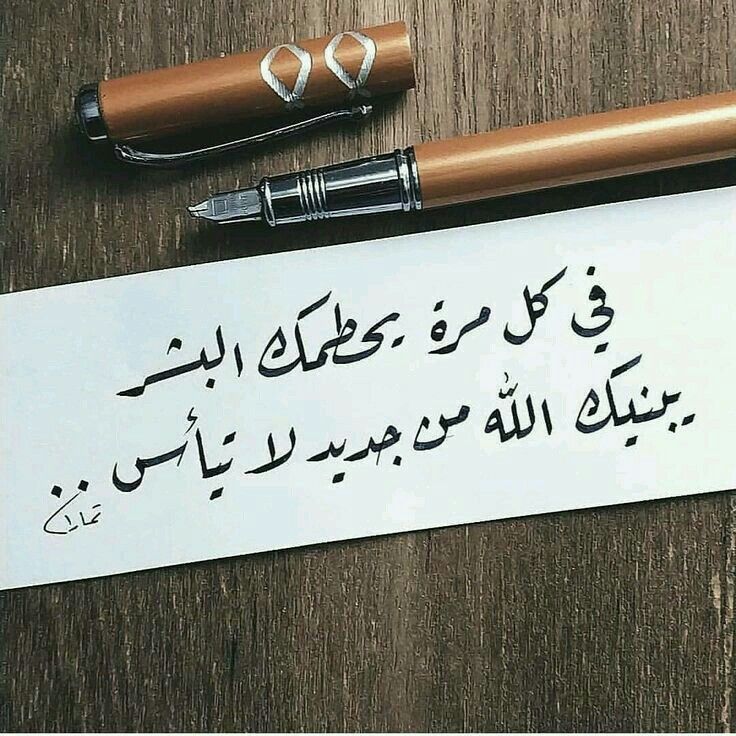 في كل مرة يحطمك البشر
يبنيك الله من جديد لا تيأس ..